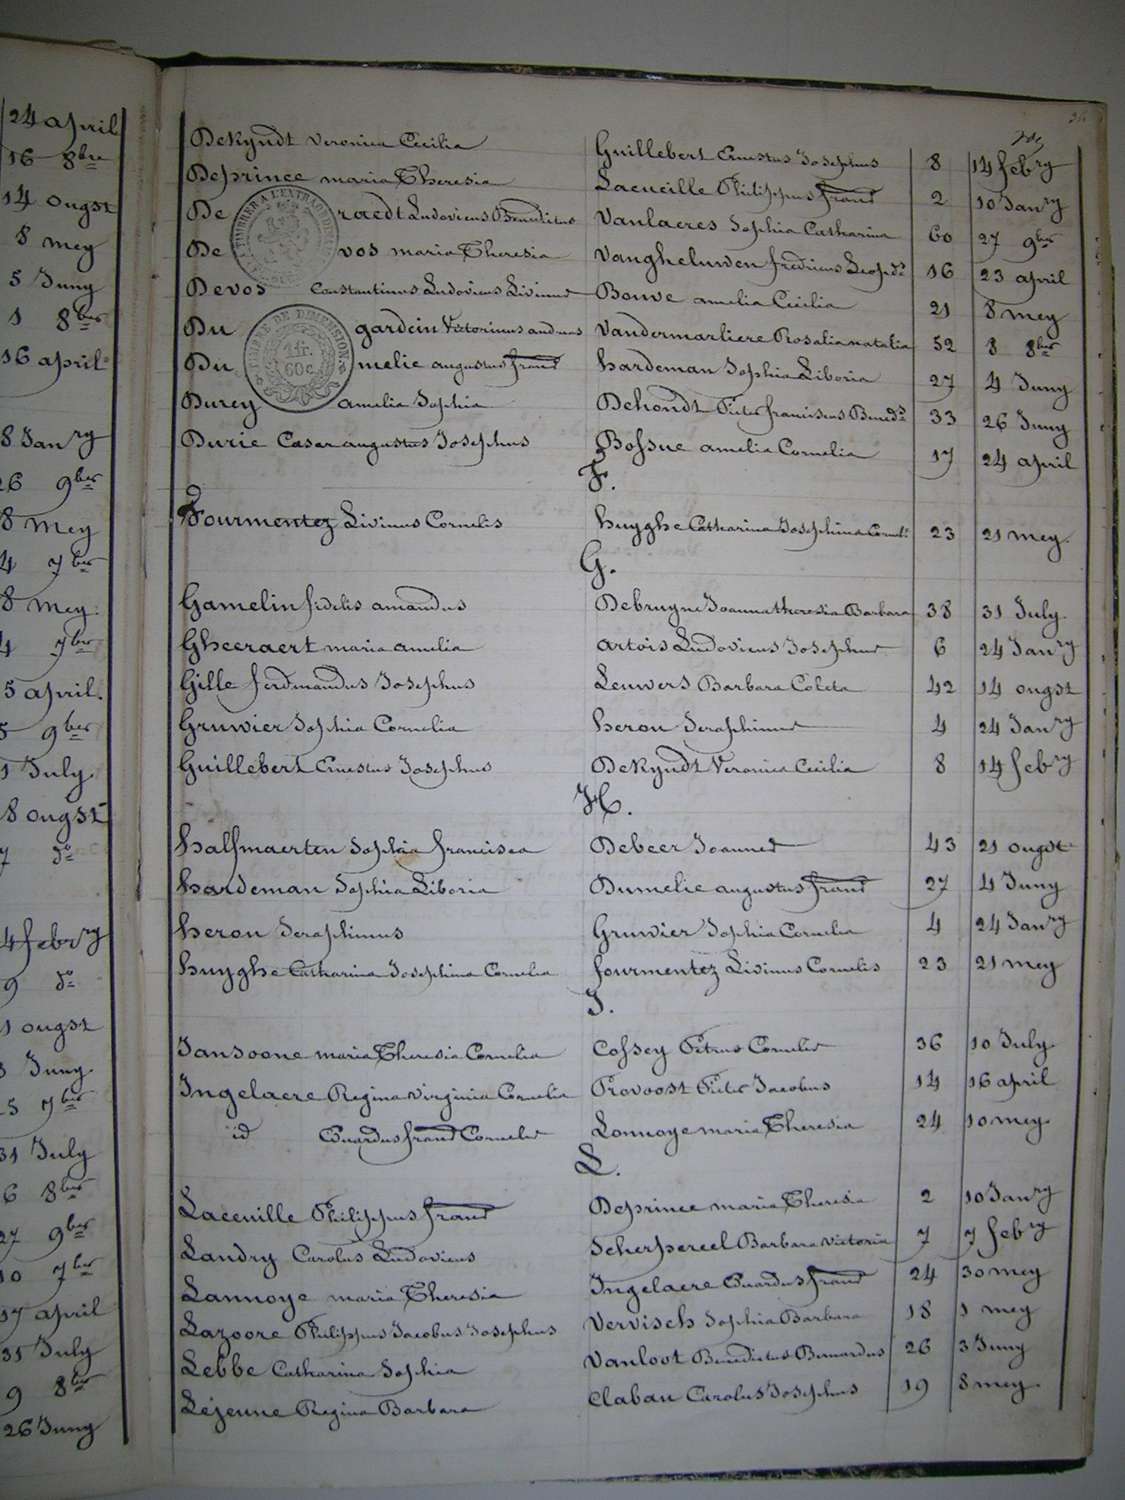 24 april
16 8bre
14 ougst
8 mey
5 Juny
1 8ber
16 april
8 Janry
26 9ber
8 mey
4 7ber
8 mey
4 7ber
5 april
5 9ber
1 July
8 ougst
7 do
4 febry
9 do
1 ougst
3 Juny
25 7ber
31 July
6 8ber
27 9ber
10 7ber
17 april
31 July
9 8ber
26 Juny
Dekyndt Veronica Cecilia Guillebert Ernestus Josephus 8 14 febry
Deprince maria Theresia Laceuille Philippus franc 2 10 Janry
De raedt Ludovicus Benedictus Vanlaeres Sophia Catharina 60 27 9ber
De vos maria Theresia Vangheluwen fredericus Leopds 16 23 april
Devos Constantinus Ludovicus Livinus Bouve amelia Cecilia 21 8 mey
Du gardein Victorinus andreas Vandermarliere Rosalia natalia 52 8 8ber
Du melie augustus franc hardeman Sophia Liboria 27 4 Juny
Durey amelia Sophia Dehondt Pieter franciscus Beneds 33 26 Juny
Durie Cesar augustus Josephus Bossue amelia Cornelia 17 24 april
TIMBRE DE DIMENSION.
1 fr.
60 c.
F.
Fourmentez Livinus Cornelis huyghe Catharina Josephina Cornel. 23 21 mey.
G.
Gamelin fidelis amandus Debruyne Joanna theresia Barbara 38 31 July
Gheeraert maria amelia artois Ludovicus Josephus 6 24 Janry
Gille ferdinandus Josephus Leuwers Barbara Coleta 42 14 ougst
Gruwier Sophia Cornelia heron Seraphinus 4 24 Janry
Guillebert Ernestus Josephus Dekyndt Veronica Cecilia 8 14 febry
H.
halfmaerten Sophia francisca Debeer Joannes 43 21 ougst
hardeman Sophia Liboria Dumelie augustus franc 27 4 Juny
heron Seraphinus Gruwier Sophia Cornelia 4 24 Janry
huyghe Catharina Josephina Cornelia fourmentez Livinus Cornelis 23 21 mey
J.
Jansoone maria Theresia Cornelia Cossey Petrus Cornelis 36 10 July
Ingelaere Regina Virginia Cornelia Provoost Pieter Jacobus 14 16 april
id Euardus franc Cornelis Lonnoye maria Theresia 24 10 mey.
L.
Laceuille Philippus franc Deprince maria Theresia 2 10 Janry
Landry Carolus Ludovicus Scherpereel Barbara Victoria 7 7 febry
Lannoye maria Theresia Ingelaere Euardus franc 24 30 mey
Lazoore Philippus Jacobus Josephus Vervisch Sophia Barbara 18 1 mey
Lebbe Catharina Sophia Vanloot Benedictus Bernardus 26 3 Juny
Lejeune Regina Barbara Clabau Carolus Josephus 19 8 mey.